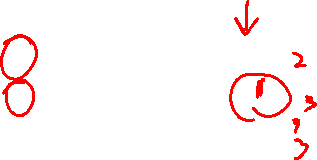 8
1
2
3
,
3